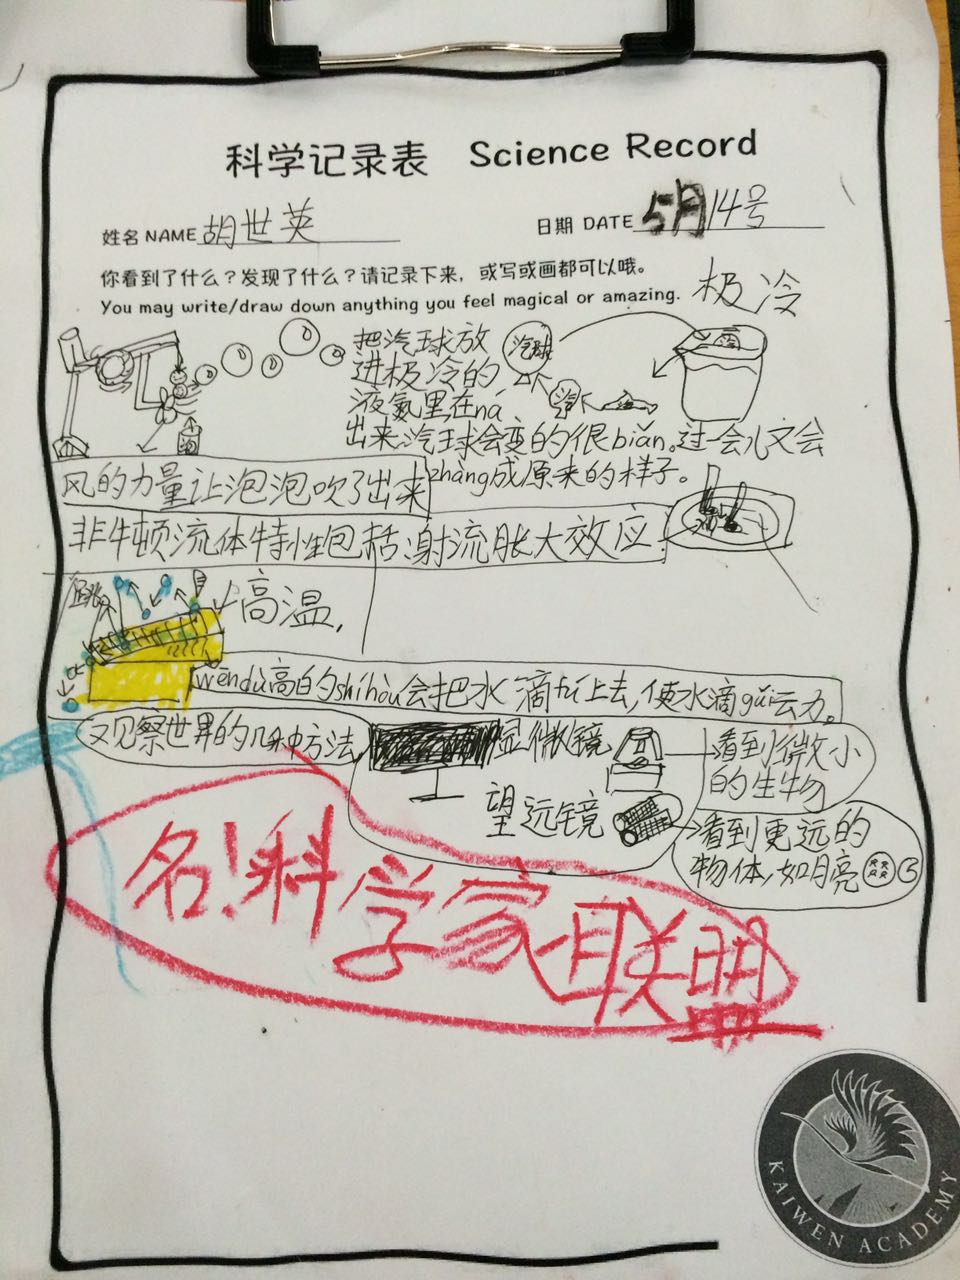 科学记录表 Science Record
姓名 NAME 胡世英 日期 DATE 5月14号
你看到了什么？发现了什么？请记录下来，或写或画都可以哦。
You may write/draw down anything you feel magical or amazing.
极冷
把汽球放
进极冷的
液氮里在ná
出来汽球会变的很biǎn。过一会儿又会
zhǎng成原来的样子。
汽球
冷
风的力量让泡泡吹了出来
非牛顿流体特性包括:射流胀大效应
高温,
wēndù高的shíhòu会把水滴fú上去,使水滴gǔn云力。
又见察世界的几种方法
显微镜
看到微小
的生物
望远镜
看到更远的
物体,如月亮
名!科学家联盟
KAIWEN ACADEMY